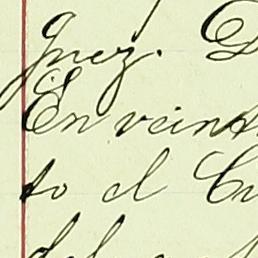 Juez. D
En vein
to el Cu
del